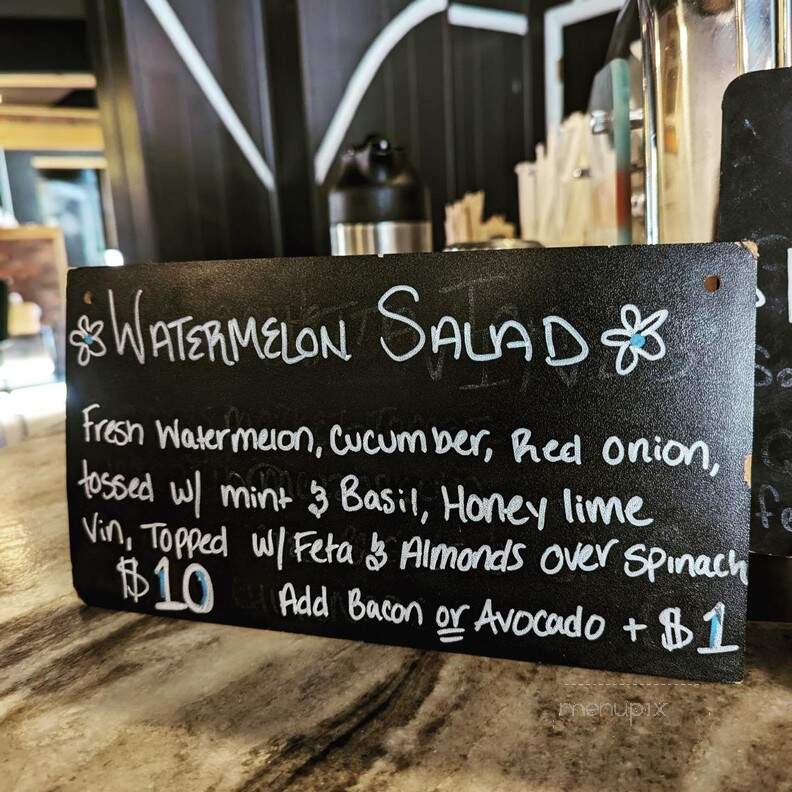 WATERMELON SALAD
Fresh Watermelon, Cucumber, Red onion,
tossed w/ mint & Basil, Honey lime
Vin, Topped w/ Feta & Almonds over spinach
$10 Add Bacon or Avocado + $1
menupix